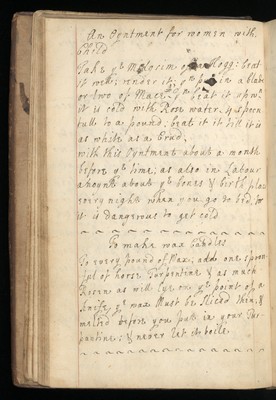 An Oyntment for women with
Child
Take ye Midorim of a Hogg: beat
it well; render it; yn put in a blade
or two of Mace; yn beat it when
it is cold with Rose water, 4 spoon
fulls to a pound, beat it till it is
as white as a Curd.
with this Oyntment about a month
before ye time, as also in Labour
anoynt about ye bones & birth place
every night when you go to bed, for
it is dangerous to get cold
To make wax Candles
To every pound of Wax, adde one spoon
full of horse Turpentine & as much
Rosen as will lye on ye point of a
knife, ye wax Must be sliced thin, &
malted before you putt in your Tur-
pantine: & never let it boile